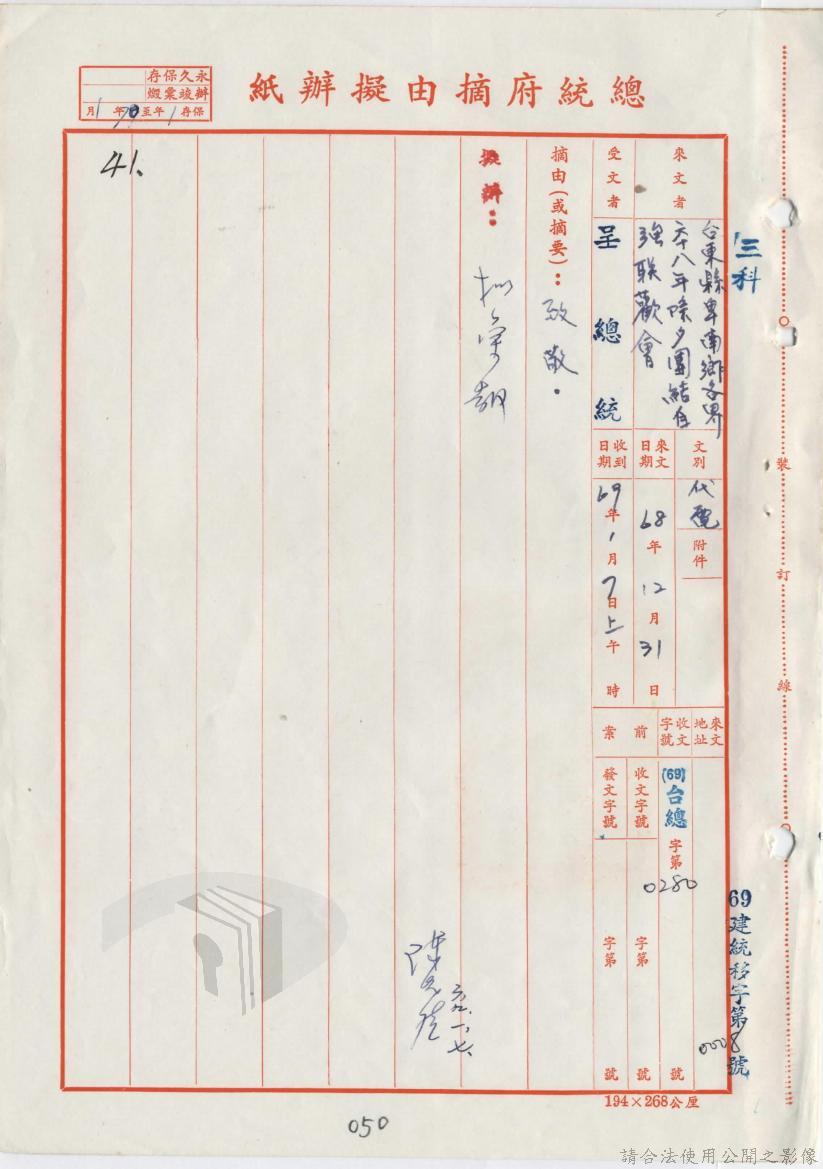 總統府摘由擬辦紙
永久保存
辦竣稟燬
保存1年至70年1月
三科
來文者
台東縣卑南鄉各界
六十八年除夕團結自
強联歡會
受文者
呈總統
摘由(或摘要):致敬.
擬辦:
41.
文別
代電
附件
來文日期
68年12月31日
收到日期
69年1月7日上午時
來文地址
收文字號
(69)台總字第0280號
前案
收文字號
字第號
發文字號
字第號
六九.一.七.
69建統移字第0008號
裝訂線
194×268公厘
050
請合法使用公開之影像